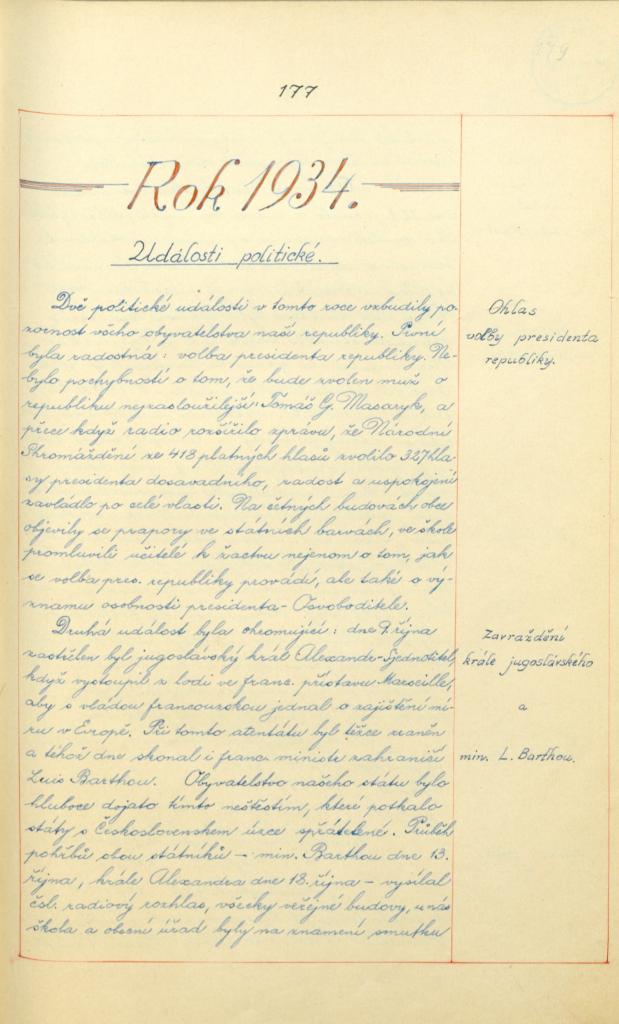 179
177
Rok 1934.
Události politické.
Dvě politické události v tomto roce vzbudily po-
zornost všeho obyvatelstva naší republiky. První
byla radostná: volba presidenta republiky. Ne-
bylo pochybností o tom, že bude zvolen muž o
republiku nejzasloužilejší: Tomáš G. Masaryk, a
přece když radio rozšířilo zprávu, že Národní
Shromáždění ze 418 platných hlasů zvolilo 327 hla-
sy presidenta dosavadního, radost a uspokojení
zavládlo po celé vlasti. Na četných budovách obce
objevily se prapory ve státních barvách, ve škole
promluvili učitelé k žactvu nejenom o tom, jak
se volba pres. republiky provádí, ale také o vý-
znamu osobnosti presidenta-Osvoboditele.
Druhá událost byla ohromující: dne 9. října
zastřelen byl jugoslávský král Alexandr-Sjednotitel,
když vystoupil z lodi ve franc. přístavu Marseille,
aby s vládou francouzskou jednal o zajištění mí-
ru v Evropě. Při tomto atentátu byl těžce raněn
a téhož dne skonal i franc. ministr zahraničí
Luis Barthou. Obyvatelstvo našeho státu bylo
hluboce dojato tímto neštěstím, které potkalo
státy s Československem úzce spřátelené. Průběh
pohřbů obou státníků – min. Barthou dne 13.
října, krále Alexandra dne 18. října – vysílal
čsl. radiový rozhlas, všecky veřejné budovy, u nás
škola a obecní úřad byly na znamení smutku
Ohlas
volby presidenta
republiky.
Zavraždění
krále jugoslávského
a
min. L. Barthou.